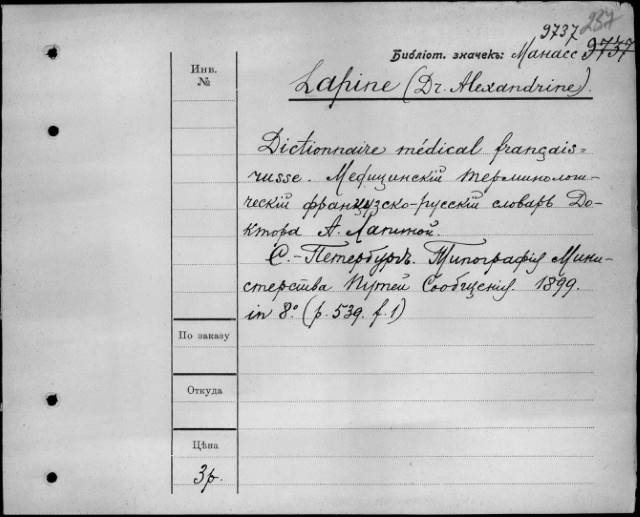 237
9737
Библіот. значекъ: Манасс 9737
Инв.
№
Lapine (Dr. Alexandrine).
Dictionnaire médical français=
russe. Медицинскій терминологи-
ческій французско-русскій словарь До-
ктора А. Лапиной.
С.-Петербургъ. Типографія Мини-
стерства Путей Сообщенія. 1899.
in 8º (p. 539. f. 1)
По заказу
Откуда
Цѣна
3р.